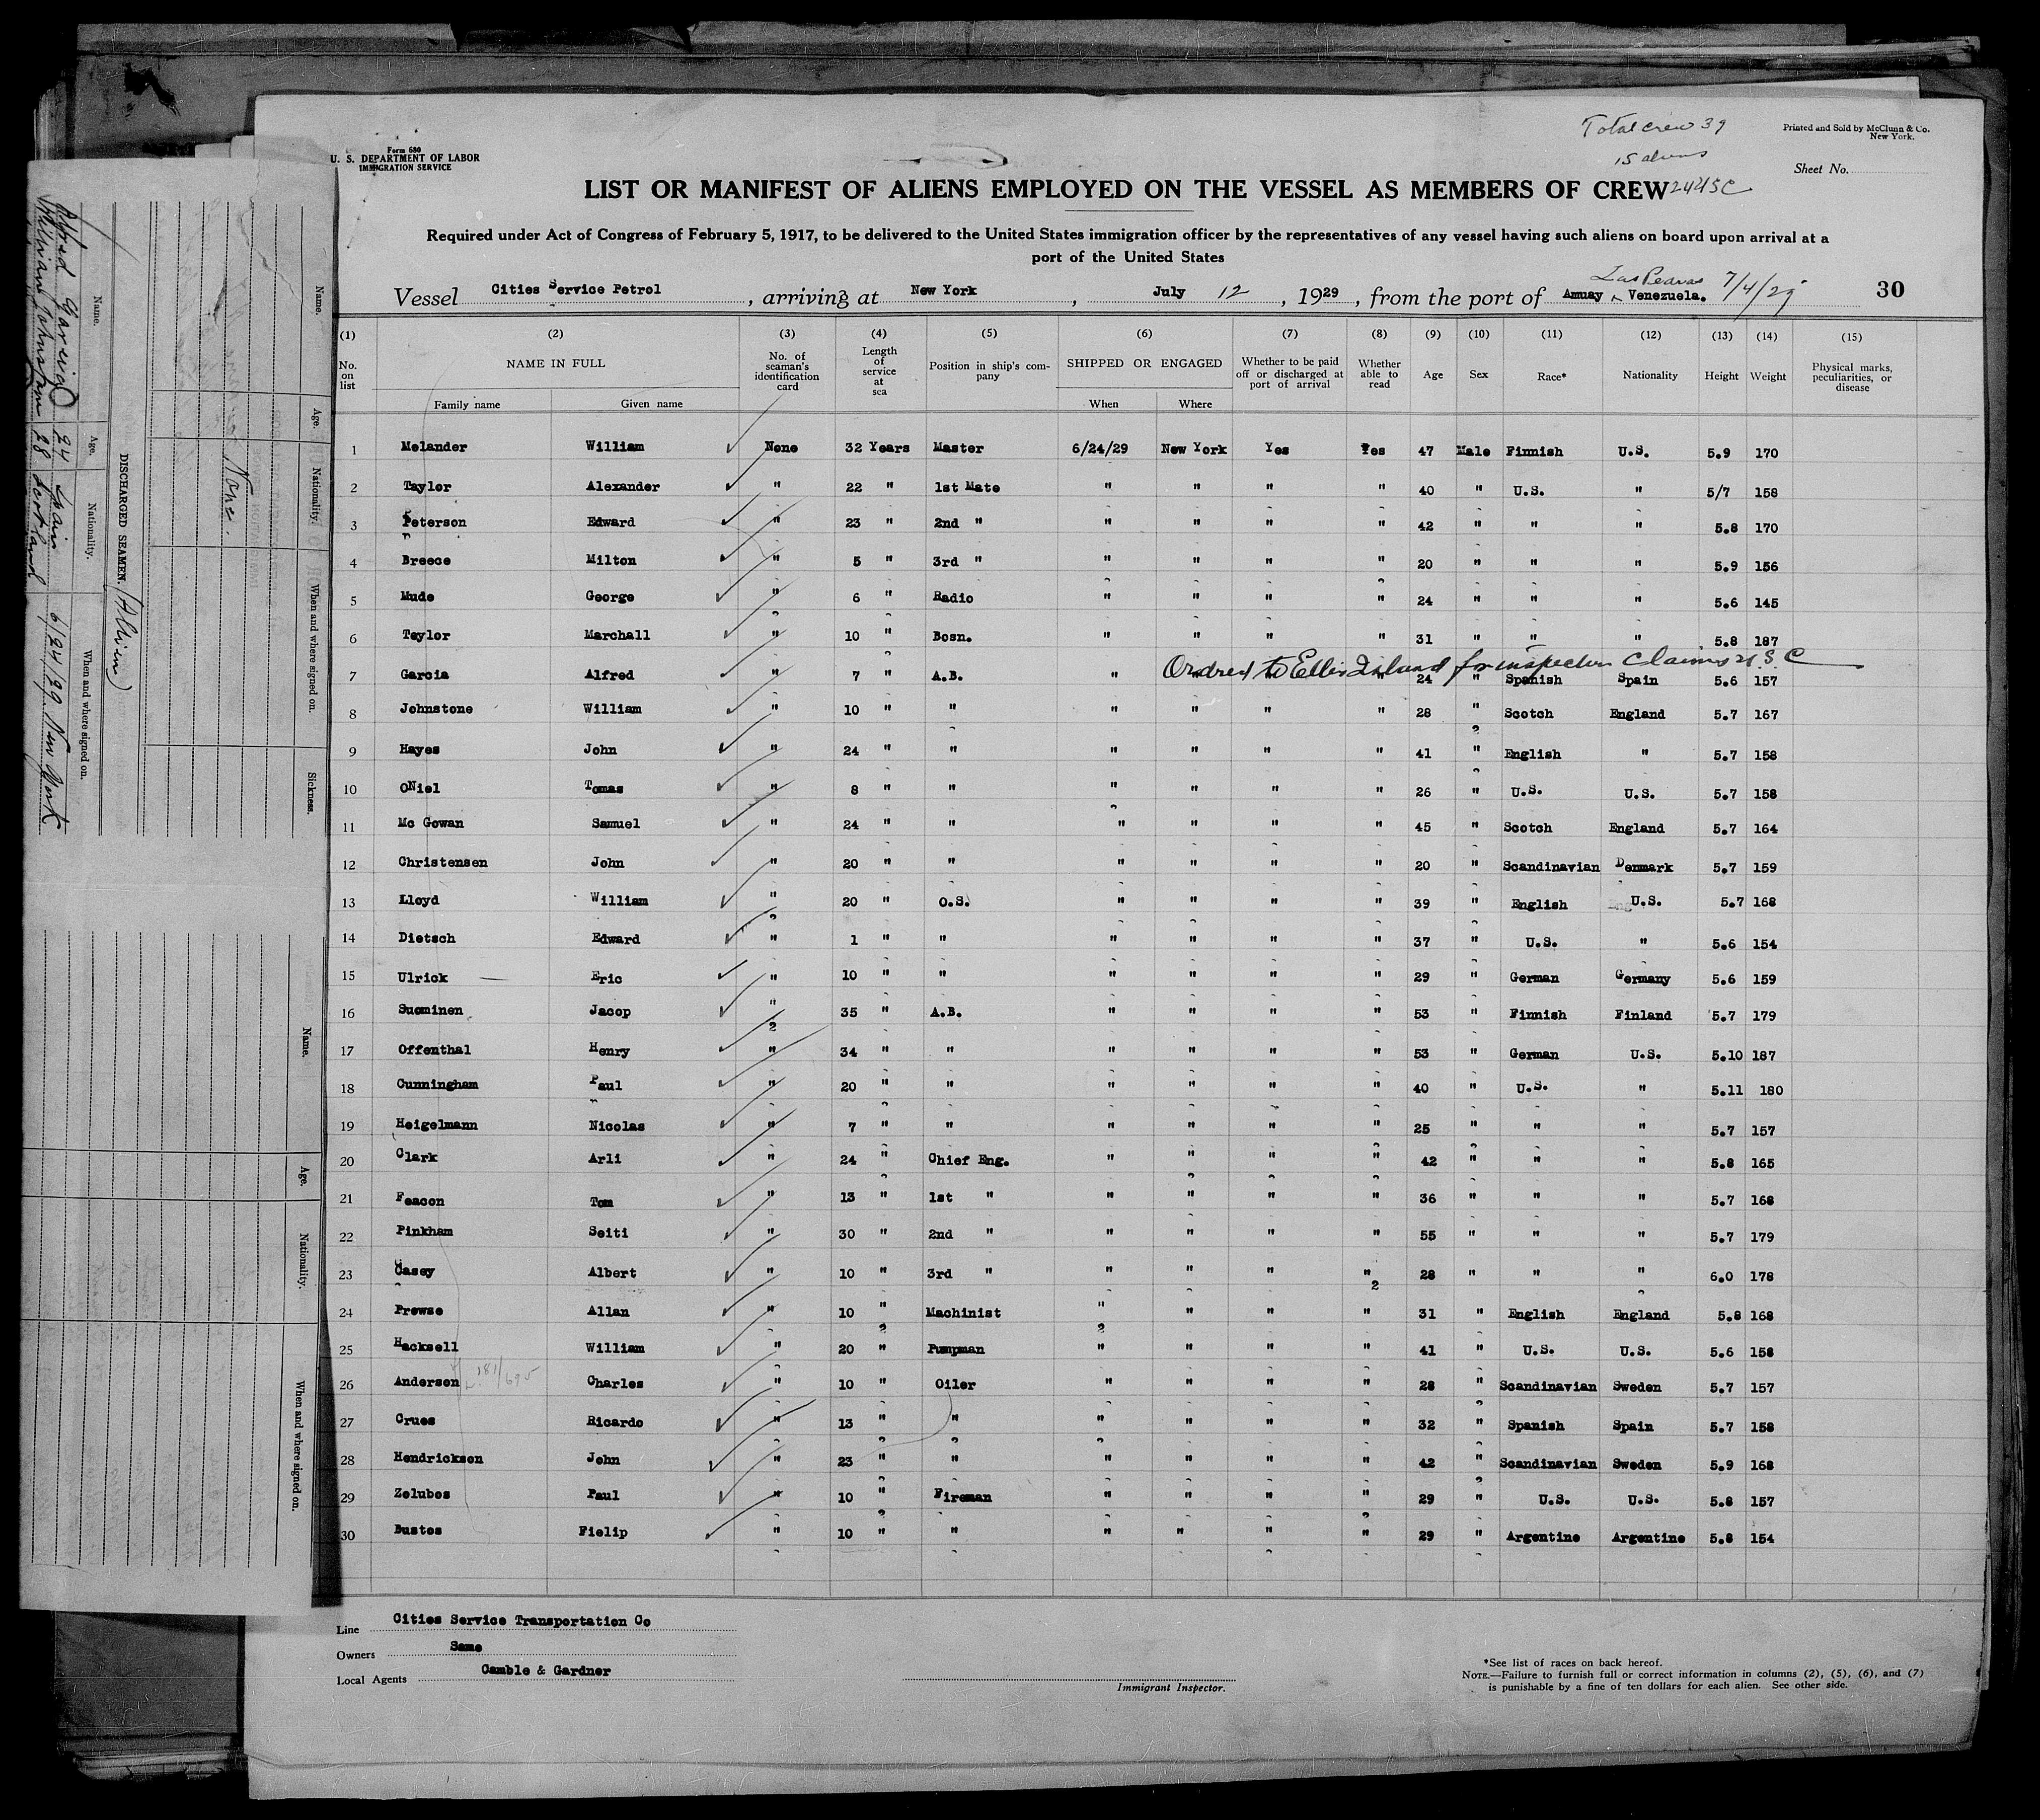 Total crew 39
15 aliens
24 USC
Printed and Sold by McClunn & Co.
New York.
Form 680
U. S. DEPARTMENT OF LABOR
IMMIGRATION SERVICE
Sheet No.
LIST OR MANIFEST OF ALIENS EMPLOYED ON THE VESSEL AS MEMBERS OF CREW
Required under Act of Congress of February 5, 1917, to be delivered to the United States immigration officer by the representatives of any vessel having such aliens on board upon arrival at a
port of the United States
Vessel Cities Service Petrol , arriving at New York , July 12 , 1929 , from the port of Amuay Las Pedras Venezuela. 7/4/29 30
(1) (2) (3) (4) (5) (6) (7) (8) (9) (10) (11) (12) (13) (14) (15)
No. on list NAME IN FULL Family name Given name No. of seaman's identification card Length of service at sea Position in ship's company SHIPPED OR ENGAGED When Where Whether to be paid off or discharged at port of arrival Whether able to read Age Sex Race* Nationality Height Weight Physical marks, peculiarities, or disease
1 Melander William None 32 Years Master 6/24/29 New York Yes Yes 47 Male Finnish U.S. 5.9 170
2 Taylor Alexander " 22 " 1st Mate " " " " 40 " U.S. " 5/7 158
3 Peterson Edward " 23 " 2nd " " " " " 42 " " " 5.8 170
4 Breece Milton " 5 " 3rd " " " " " 20 " " " 5.9 156
5 Mude George " 6 " Radio " " " " 24 " " " 5.6 145
6 Taylor Marchall " 10 " Bosn. " " " " 31 " " " 5.8 187
Ordred to Ellis Island for inspection Claims U.S.C
7 Garcia Alfred " 7 " A.B. " " " " 24 " Spanish Spain 5.6 157
8 Johnstone William " 10 " " " " " " 28 " Scotch England 5.7 167
9 Hayes John " 24 " " " " " " 41 " English " 5.7 158
10 ONiel Tomas " 8 " " " " " " 26 " U.S. U.S. 5.7 158
11 Mc Gowan Samuel " 24 " " " " " " 45 " Scotch England 5.7 164
12 Christensen John " 20 " " " " " " 20 " Scandinavian Denmark 5.7 159
13 Lloyd William " 20 " O.S. " " " " 39 " English U.S. 5.7 168
14 Dietsch Edward " 1 " " " " " " 37 " U.S. " 5.6 154
15 Ulrick Eric " 10 " " " " " " 29 " German Germany 5.6 159
16 Suominen Jacop " 35 " A.B. " " " " 53 " Finnish Finland 5.7 179
17 Offenthal Henry " 34 " " " " " " 53 " German U.S. 5.10 187
18 Cunningham Paul " 20 " " " " " " 40 " U.S. " 5.11 180
19 Heigelmann Nicolas " 7 " " " " " " 25 " " " 5.7 157
20 Clark Arli " 24 " Chief Eng. " " " " 42 " " " 5.8 165
21 Feacon Tom " 13 " 1st " " " " " 36 " " " 5.7 168
22 Pinkham Seiti " 30 " 2nd " " " " " 55 " " " 5.7 179
23 Casey Albert " 10 " 3rd " " " " " 28 " " " 6.0 178
24 Prewse Allan " 10 " Machinist " " " " 31 " English England 5.8 168
25 Hacksell William " 20 " Pumpman " " " " 41 " U.S. U.S. 5.6 158
26 Anderson Charles " 10 " Oiler " " " " 28 " Scandinavian Sweden 5.7 157
27 Crues Ricardo " 13 " " " " " " 32 " Spanish Spain 5.7 158
28 Hendrickson John " 23 " " " " " " 42 " Scandinavian Sweden 5.9 168
29 Zelubos Paul " 10 " Fireman " " " " 29 " U.S. U.S. 5.8 157
30 Bustos Fielip " 10 " " " " " " 29 " Argentine Argentine 5.8 154
Line Cities Service Transportation Co
Owners Same
Local Agents Camble & Gardner
Immigrant Inspector.
*See list of races on back hereof.
NOTE.—Failure to furnish full or correct information in columns (2), (5), (6), and (7)
is punishable by a fine of ten dollars for each alien. See other side.
Name. Age. Nationality. When and where signed on. Sickness.
None.
DISCHARGED SEAMEN. (Alien)
Name. Age. Nationality. When and where signed on.
Alfred Garcia 24 Spain 6/24/29 New York
William Johnstone 28 Scotland
Name. Age. Nationality. When and where signed on.